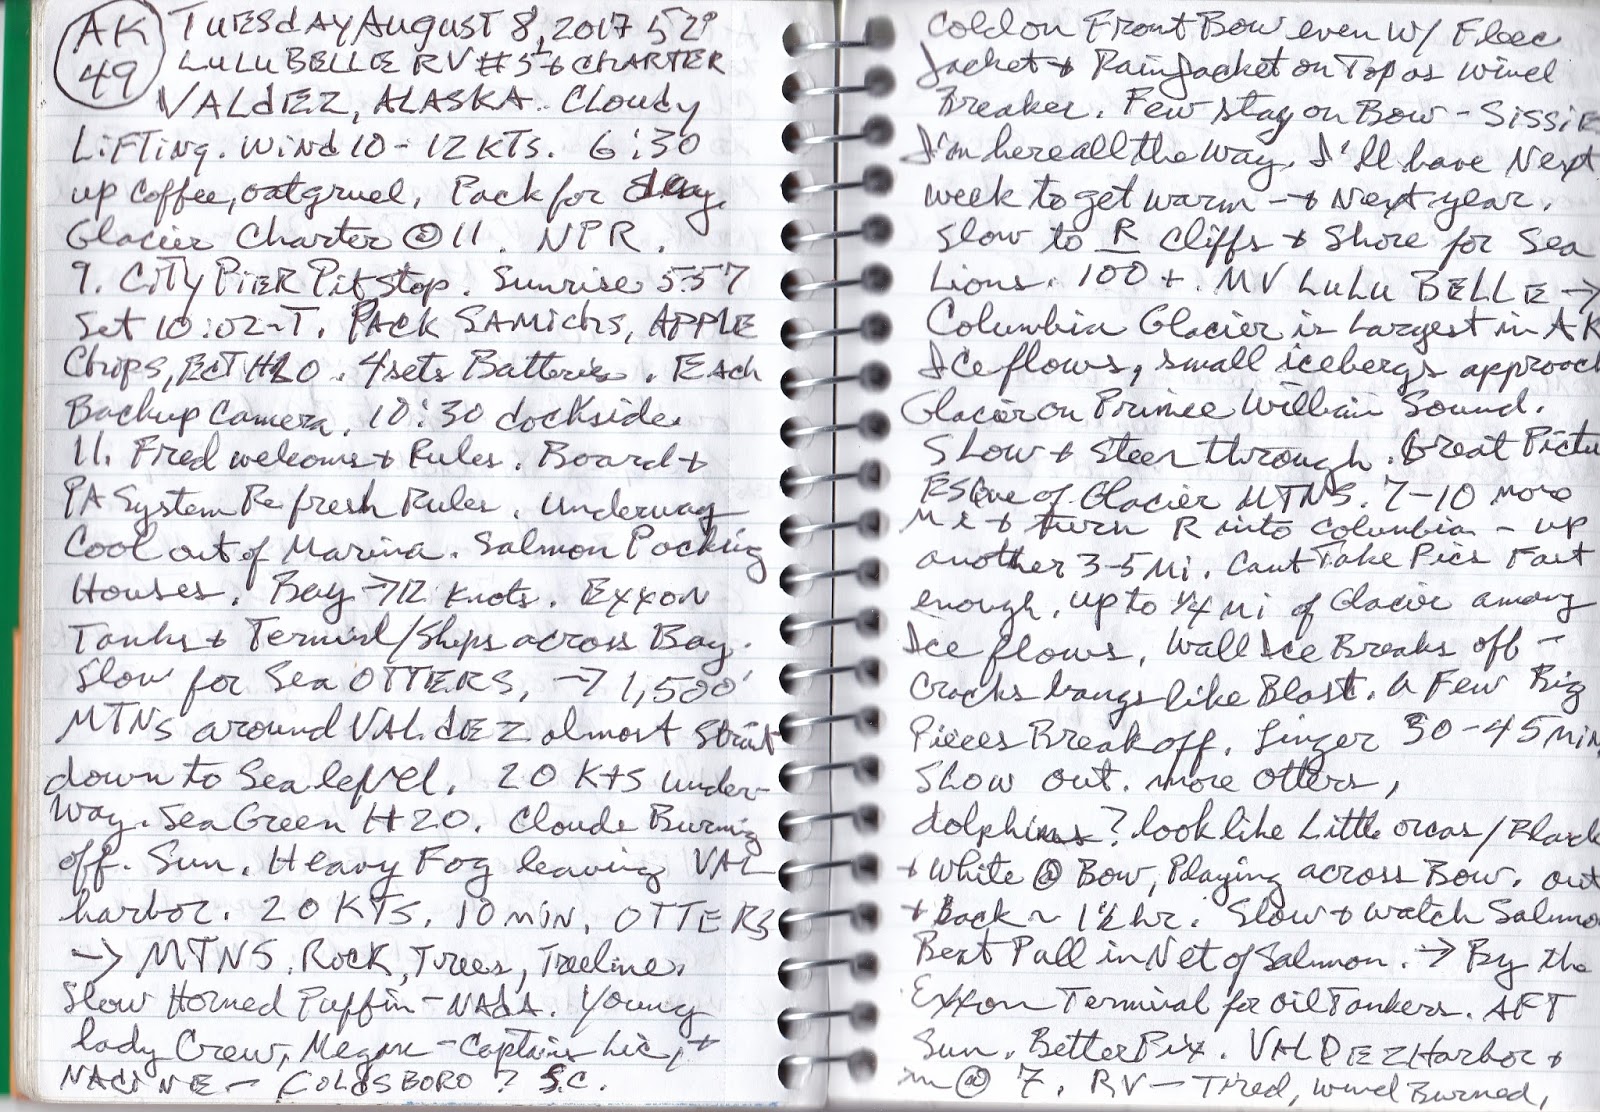 AK
49
Tuesday August 8, 2017 52°
LuLu BELLE RV #5 + CHARTER
VALdEZ, ALASKA. Cloudy
Lifting. Wind 10-12 KTS. 6:30
up coffee, oatgruel, Pack for day.
Glacier Charter @ 11. NPR.
9. City PiER Pit Stop. Sunrise 5:57
Set 10:02-T. PACK SAMichs, APPLE
Chips, Ect H2O. 4 sets Batteries. Each
Backup Camera. 10:30 dockside.
11. Fred welcoms + Rules. Board +
PA System Refresh Rules. Underway
Cool out of Marina. Salmon Packing
Houses. Bay → 12 knots. Exxon
Tanks + Terminl/Ships across Bay.
Slow for Sea OTTERS, → 1,500'
MTNS around VALdEZ almost Strait
down to Sea level. 20 KTS under-
way. Sea Green H2O. Clouds Burning
off. Sun. Heavy Fog leaving VAL
harbor. 20 KTS. 10 min. OTTERS
→ MTNS. Rock, Trees, Treeline.
Slow Horned Puffin - NAdA. Young
lady Crew, Megan - Captains Lic, +
NADINE - GOLDSBORO? S.C.
Cold on Front Bow even w/ Fleec
Jacket + Rain Jacket on Top as wind
Breaker. Few stay on Bow - Sissie
I'm here all the way. I'll have Next
week to get warm - + Next year.
Slow to R cliffs + Shore for Sea
Lions. 100+. MV LuLu BELLE →
Columbia Glacier is Largest in AK
Ice flows, small icebergs approach
Glacier on Prince William Sound.
Slow + steer through. Great Pictu
ESque of Glacier MTNS. 7-10 more
Mi + turn R into Columbia - up
another 3-5 Mi. Cant Take Pics Fast
enough. up to 1/4 mi of Glacier among
Ice flows, Wall Ice Breaks off -
Cracks bangs like Blast. A Few Big
Pieces Break off. Linger 30-45 Min
Slow out. more Otters,
dolphins? look like Little orcas/Black
+ White @ Bow, Playing across Bow. out
+ Back ~ 1 1/2 hr. Slow + watch Salmo
Boat Pull in Net of Salmon. → By the
Exxon Terminal for oil Tankers. AFT
Sun. Better Pix. VALDEZ Harbor +
in @ 7. RV - Tired, wind Burned,